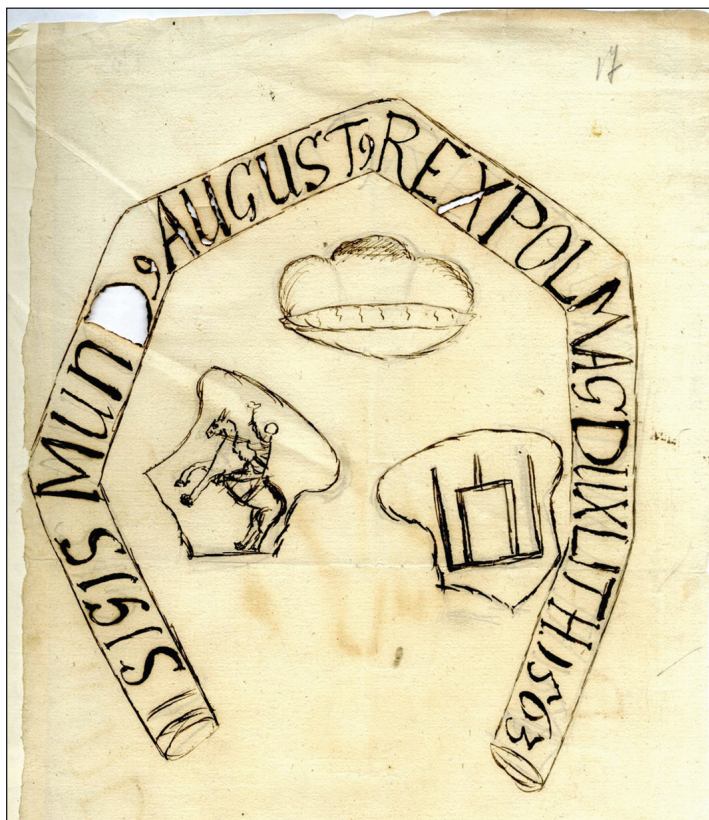 17
SIGIS MUND9 AUGUST9 REX POL MAG DUX LITH 1563